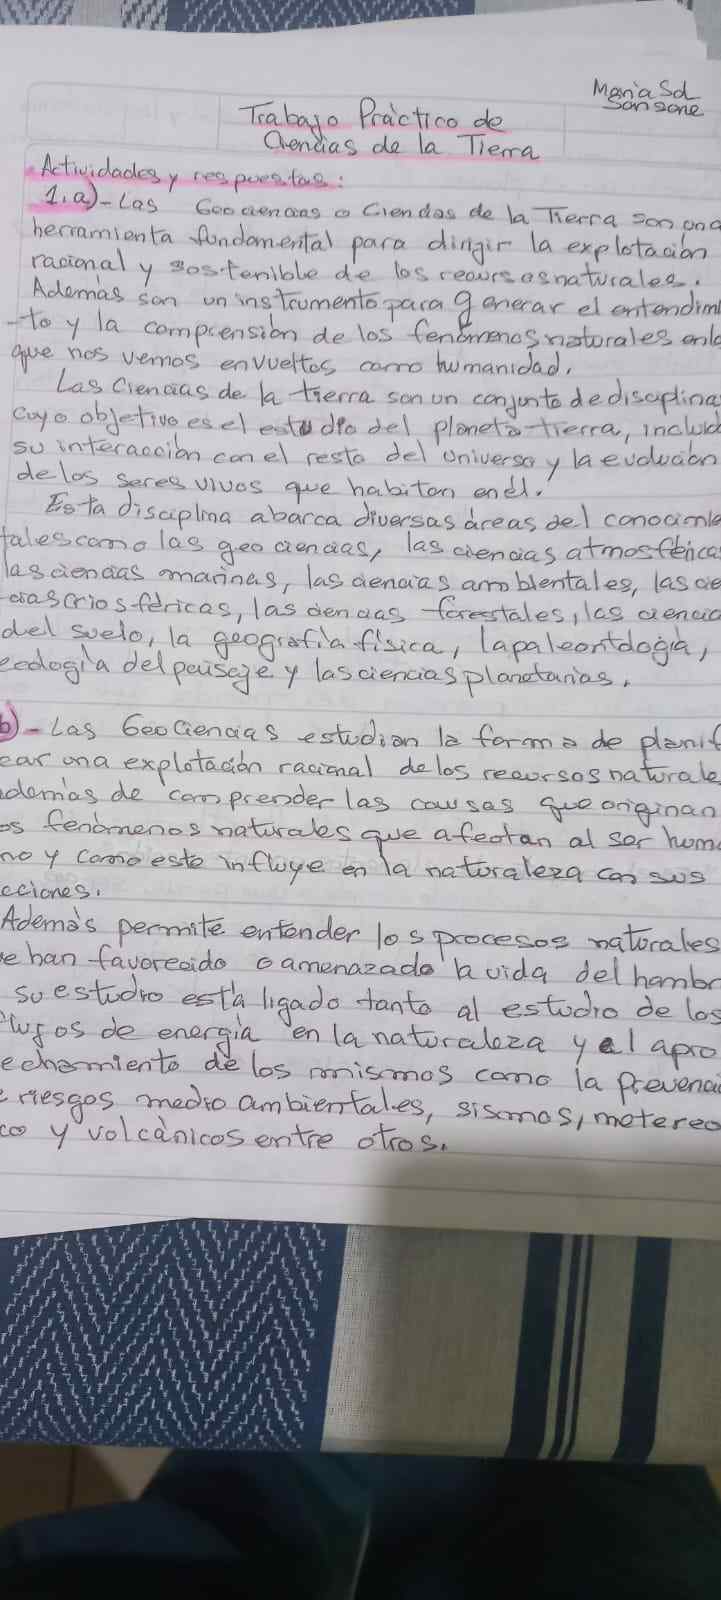 Maria Sol
Sansone
Trabajo Práctico de
Ciencias de la Tierra
Actividades y respuestas:
1.a)-Las Geociencias o Ciencias de la Tierra son una
herramienta fundamental para dirigir la explotación
racional y sostenible de los recursos naturales.
Además son un instrumento para generar el entendimi
-to y la comprensión de los fenómenos naturales en lo
que nos vemos envueltos como humanidad.
Las Ciencias de la tierra son un conjunto de disciplina
cuyo objetivo es el estudio del planeta tierra, incluid
su interacción con el resto del universo y la evolución
de los seres vivos que habitan en él.
Esta disciplina abarca diversas áreas del conocimie
tales como las geociencias, las ciencias atmosférica
las ciencias marinas, las ciencias ambientales, las cie
cias criosféricas, las ciencias forestales, las ciencia
del suelo, la geografía física, la paleontología,
ecología del paisaje y las ciencias planetarias.
b)-Las GeoCiencias estudian la forma de planif
car una explotación racional de los recursos naturale
demás de comprender las causas que originan
os fenómenos naturales que afectan al ser huma
no y como este influye en la naturaleza con sus
cciones.
Además permite entender los procesos naturales
e han favorecido o amenazado la vida del hombr
su estudio está ligado tanto al estudio de los
flujos de energía en la naturaleza y el apro
echamiento de los mismos como la prevenci
e riesgos medio ambientales, sismos, metereo
co y volcánicos entre otros.